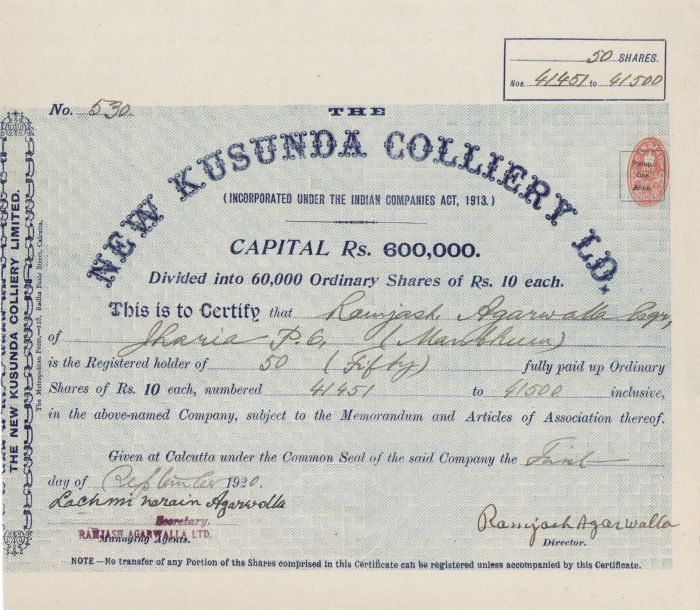 50 SHARES.
Nos. 41451 to 41500
No. 530
THE
NEW KUSUNDA COLLIERY LD.
(INCORPORATED UNDER THE INDIAN COMPANIES ACT, 1913.)
Stamp
One
Anna.
CAPITAL Rs. 600,000.
Divided into 60,000 Ordinary Shares of Rs. 10 each.
This is to Certify that Ramjash Agarwalla Esqr,
of Jharia P.O. (Manbhum)
is the Registered holder of 50 (Fifty) fully paid up Ordinary
Shares of Rs. 10 each, numbered 41451 to 41500 inclusive,
in the above-named Company, subject to the Memorandum and Articles of Association thereof.
Given at Calcutta under the Common Seal of the said Company the First
day of September 1920.
Lachmi Narain Agarwalla
Secretary.
RAMJASH AGARWALLA LTD.
Managing Agents.
Ramjash Agarwalla
Director.
NOTE—No transfer of any Portion of the Shares comprised in this Certificate can be registered unless accompanied by this Certificate.
THE NEW KUSUNDA COLLIERY LIMITED.
The Metropolitan Press,
Street, Calcutta.